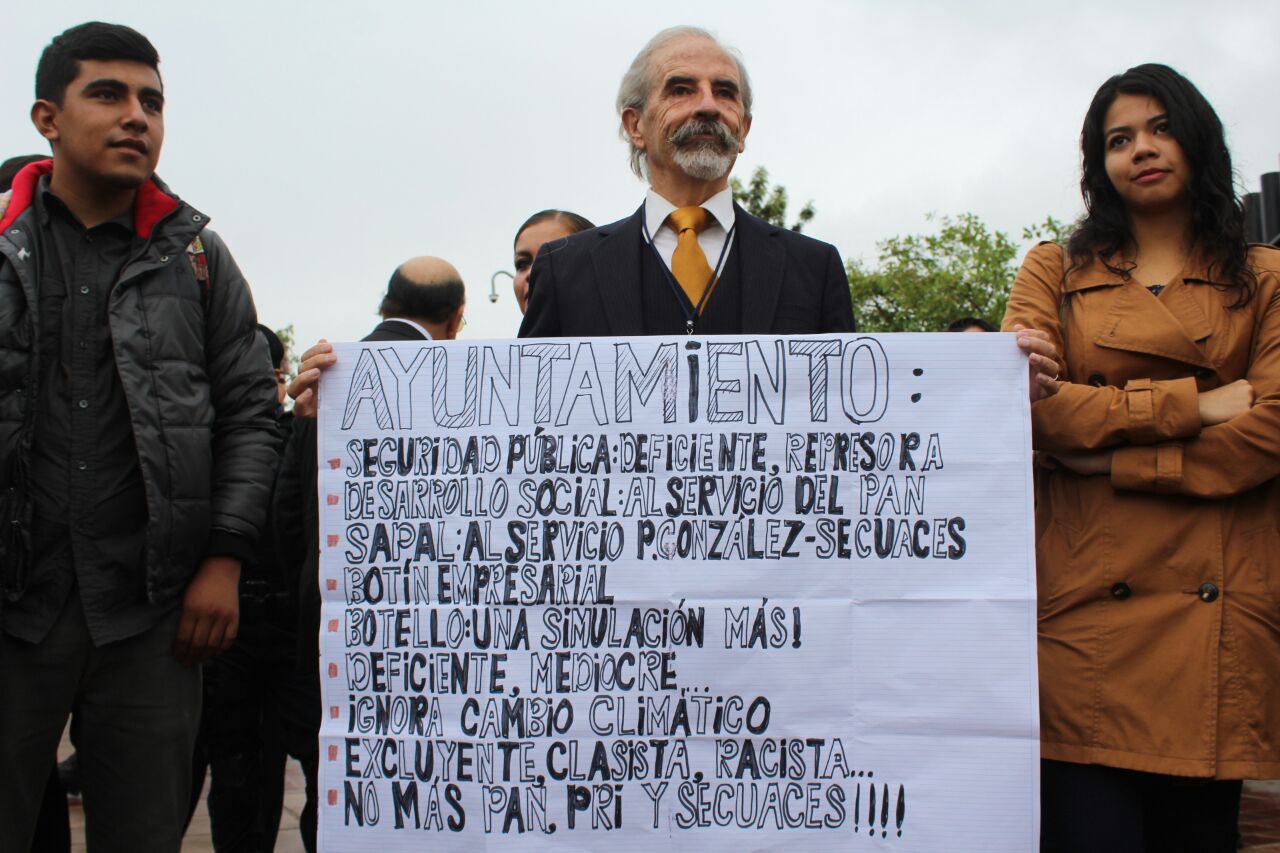 AYUNTAMiENTO:
SEGURiDAD PÚBLiCA:DEFiCiENTE, REPRESORA
DESARROLLO SOCiAL:AL SERViCiO DEL PAN
SAPAL:AL SERViCiO P.GONZÁLEZ-SECUACES
BOTÍN EMPRESARIAL
BOTELLO:UNA SiMULACiÓN MÁS!
DEFiCiENTE, MEDiOCRE...
iGNORA CAMBiO CLiMÁTiCO
EXCLUYENTE, CLASiSTA, RACiSTA...
NO MÁS PAN, PRi Y SECUACES!!!!